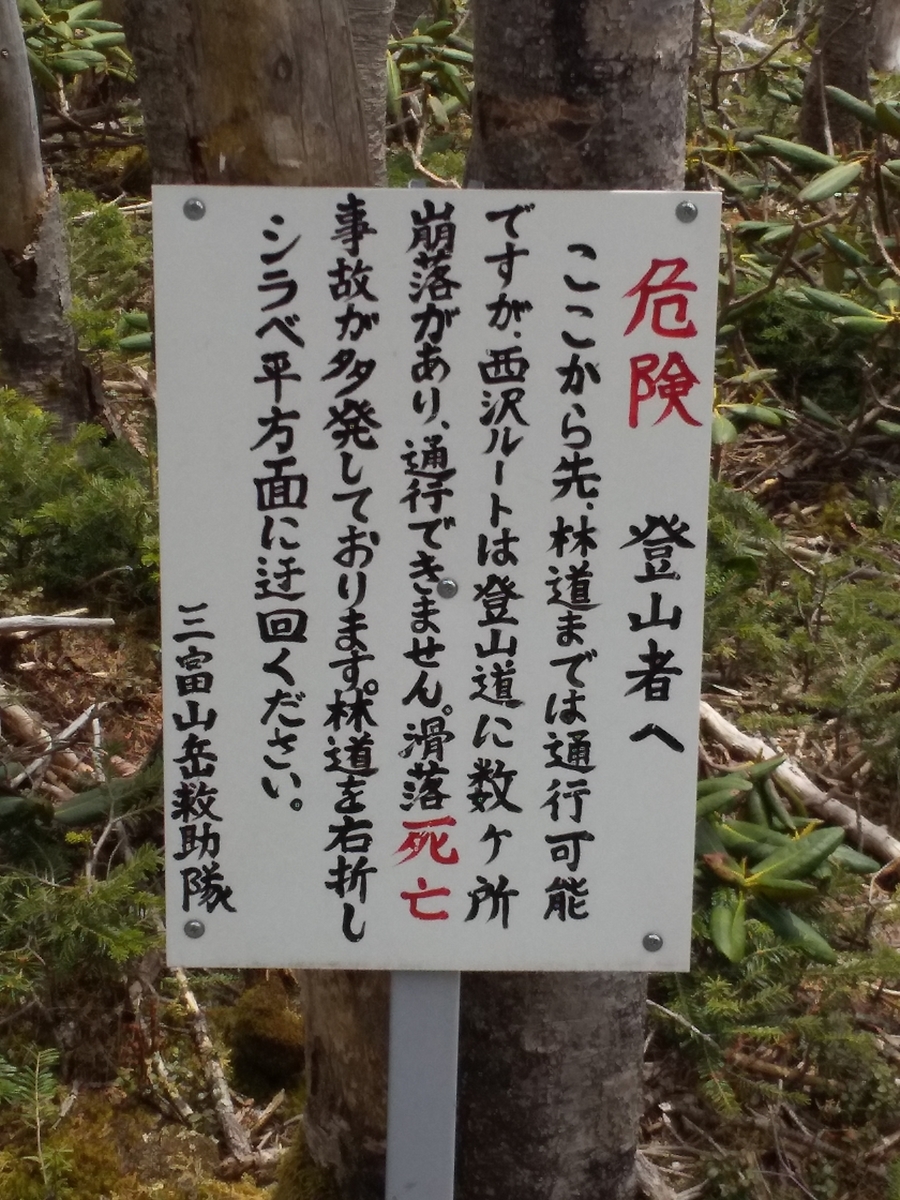 危険 登山者へ
ここから先、林道までは通行可能
ですが、西沢ルートは登山道に数ヶ所
崩落があり、通行できません。滑落死亡
事故が多発しております。林道を右折し
シラベ平方面に迂回ください。
三富山岳救助隊